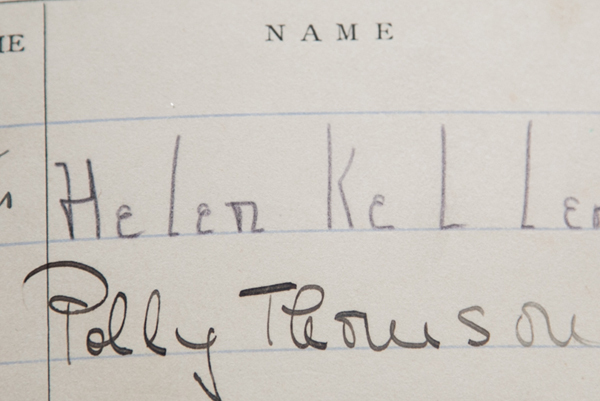 ME NAME
Helen Keller
Polly Thomson